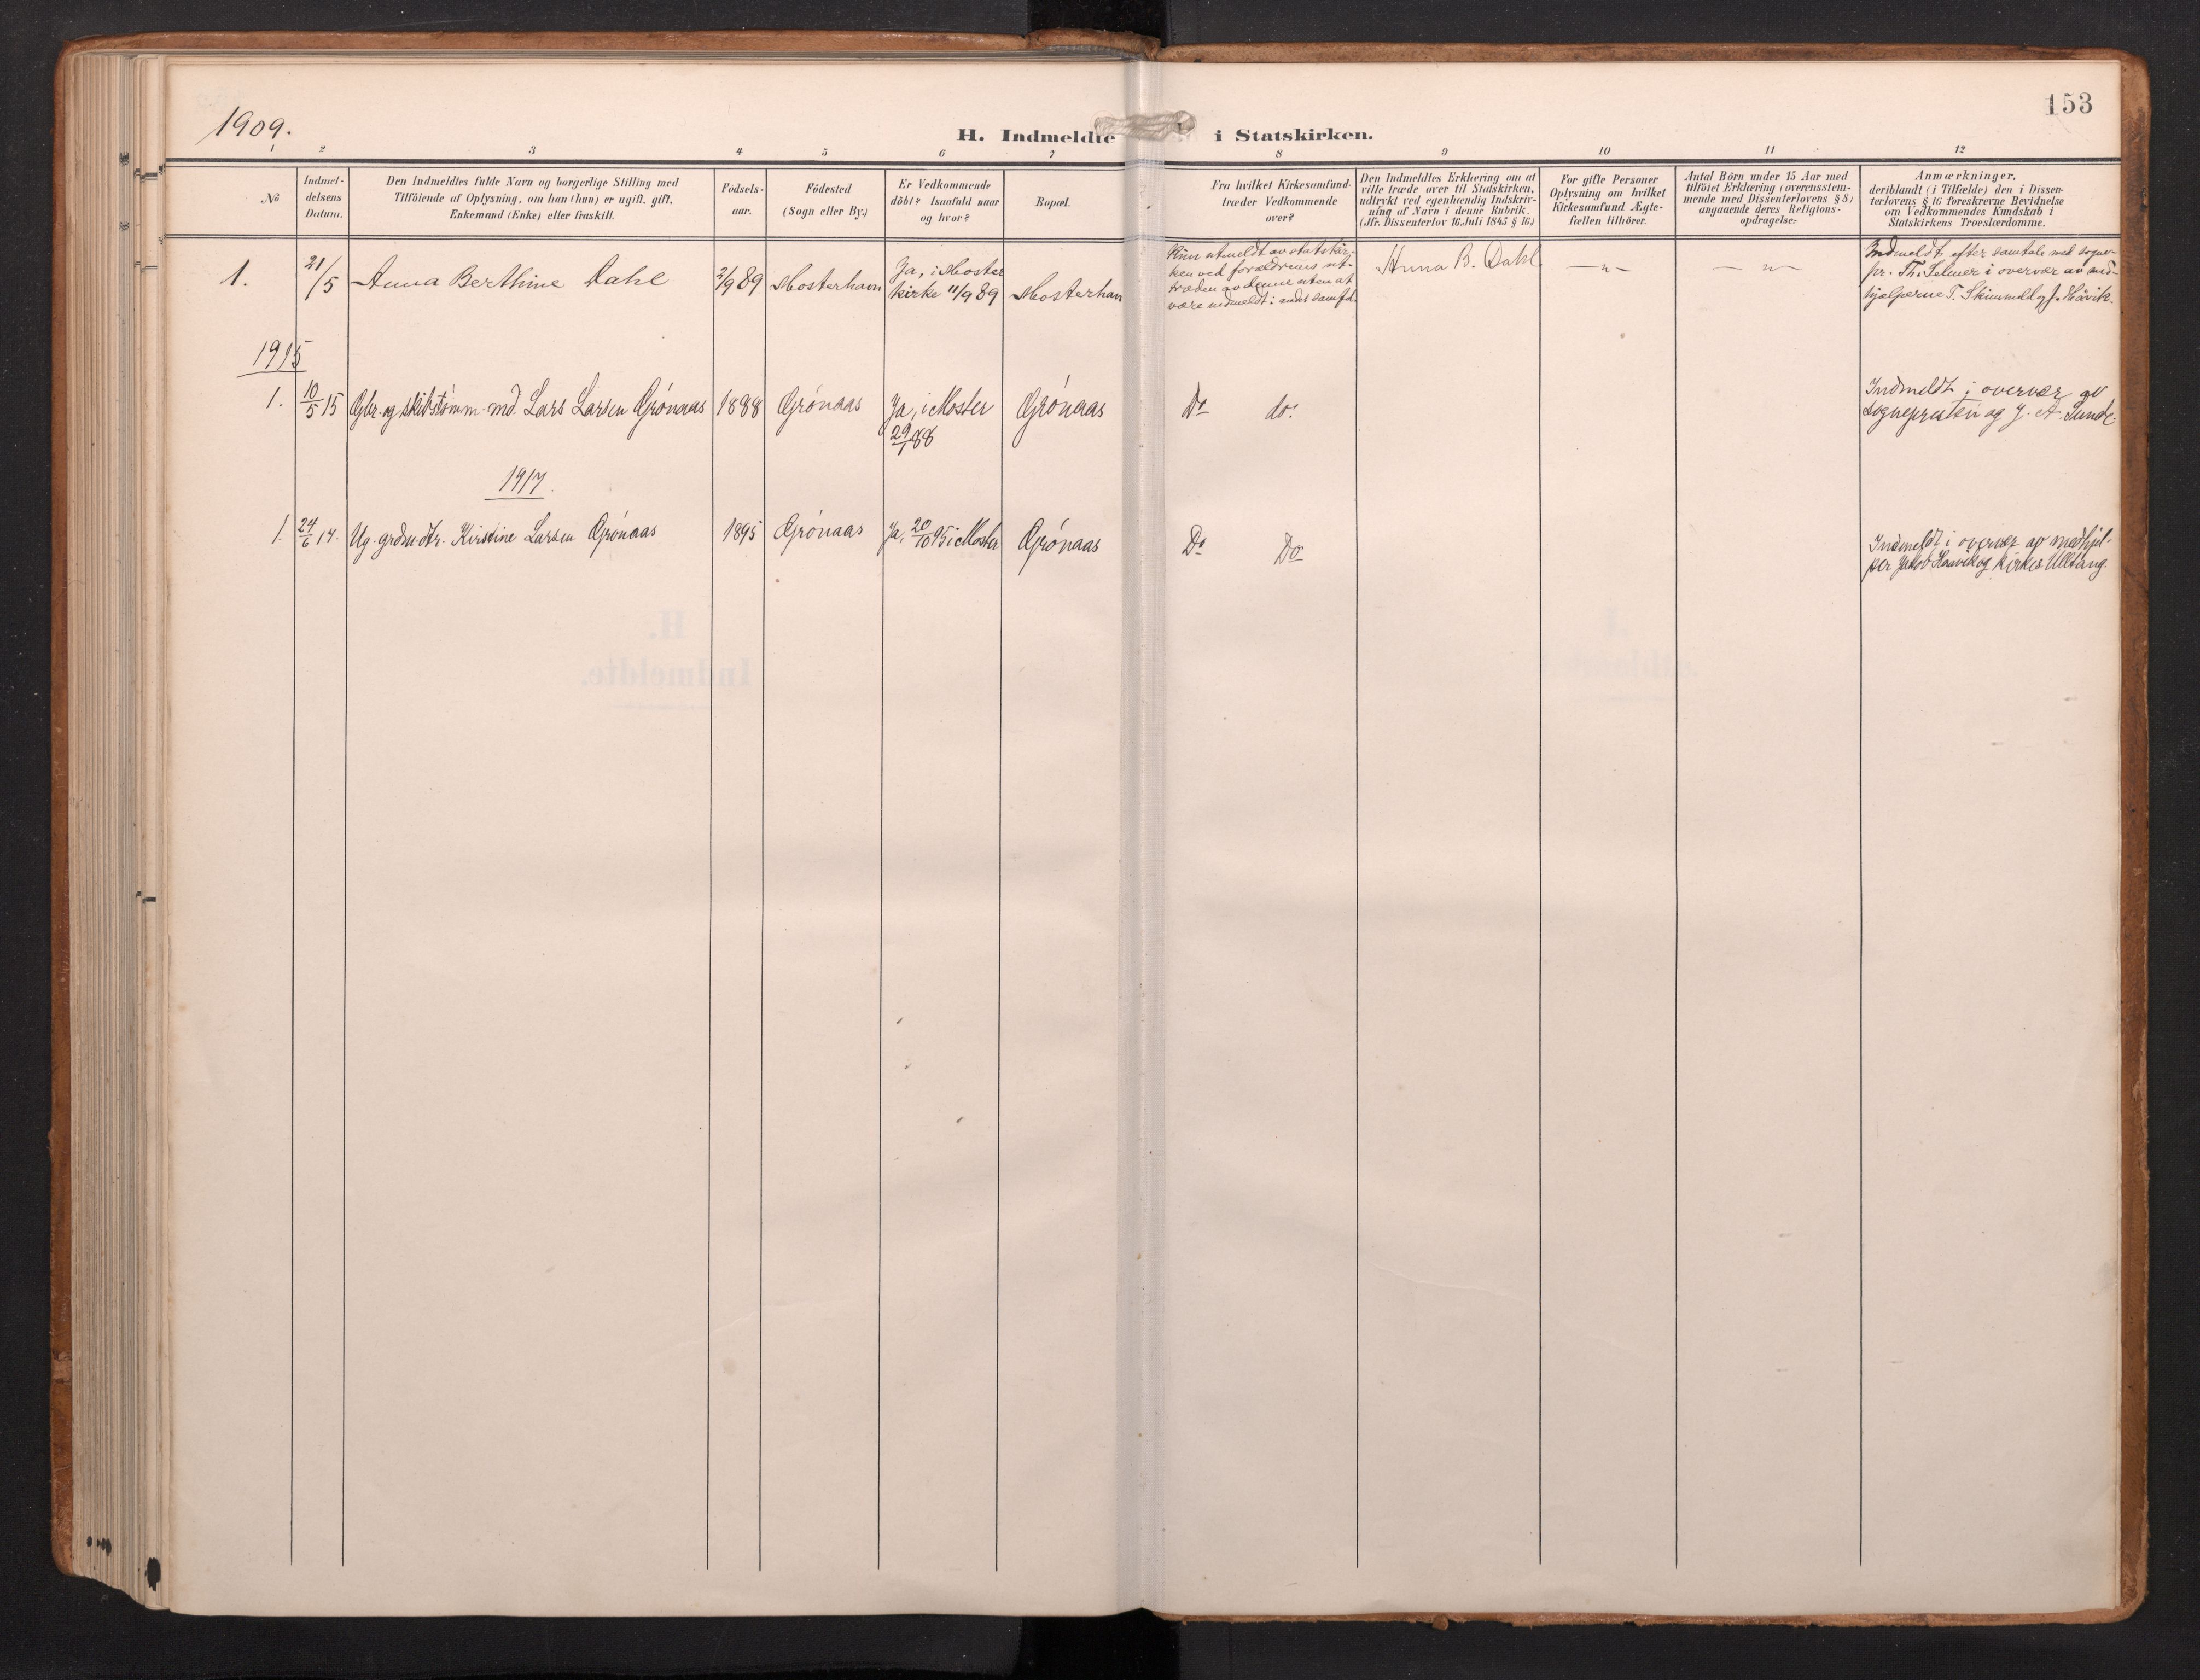 153
1909.
H. Indmeldte i Statskirken.
1 2 3 4 5 6 7 8 9 10 11 12
No
Indmel-
delsens
Datum.
Den Indmeldtes fulde Navn og borgerlige Stilling med
Tilföiende af Oplysning, om han (hun) er ugift, gift,
Enkemand (Enke) eller fraskilt.
Fødsels-
aar.
Födested
(Sogn eller By.)
Er Vedkommende
döbt? Isaafald naar
og hvor?
Bopæl.
Fra hvilket Kirkesamfund
træder Vedkommende
over?
Den Indmeldtes Erklæring om at
ville træde over til Statskirken,
udtrykt ved egenhændig Indskriv-
ning af Navn i denne Rubrik.
(Jfr. Dissenterlov 16 Juli 1845 § 16)
For gifte Personer
Oplysning om hvilket
Kirkesamfund Ægte-
fællen tilhörer.
Antal Börn under 15 Aar med
tilföiet Erklæring (overensstem-
mende med Dissenterlovens § 8)
angaaende deres Religions-
opdragelse:
Anmærkninger,
deriblandt (i Tilfælde) den i Dissen-
terlovens § 16 foreskrevne Bevidnelse
om Vedkommendes Kundskab i
Statskirkens Troeslærdomme.
1.
21/5
Anna Berthine Dahl
2/9 89
Mosterhavn
Ja, i Moster
kirke 11/9 89
Mosterhavn
Kun utmeldt av statskir-
ken ved forældrenes ut-
træden av denne uten at
være indmeldt i andet samfd.
Anna B. Dahl
—"—
—"—
Indmeldt efter samtale med sogne-
pr. Th. Selmer i overvær av med-
hjælperne T. og J. Håvik.
1915
1.
10/5 15
Gbr. og skibstømm. md. Lars Larsen Grönaas
1888
Grönaas
Ja, i Moster
29/1 88
Grönaas
Do do.
Indmeldt i overvær av
sognepresten og J. A. Sunde.
1917.
1.
24/6 17.
Ug. grdm.dtr. Kirstine Larsen Grönaas
1895
Grönaas
Ja, 20/10 95 i Moster
Grönaas
Do Do
Indmeldt i overvær av medhjel-
per Jakob Haavik og kirkes. Ulltang.